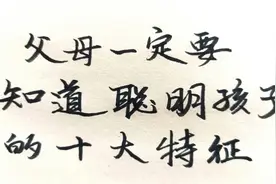 父母一定要
知道聪明孩子
的十大特征